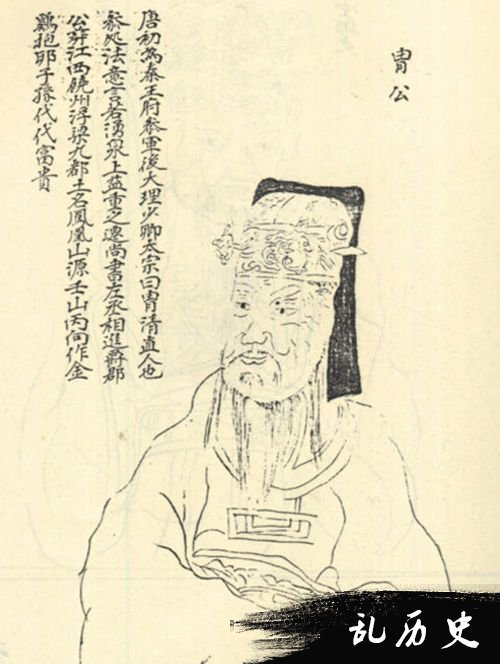 胄公
唐初為秦王府叅軍後大理少卿太宗曰胄清直人也
叅処法意言若湧泉上益重之遷尚書左丞相進爵郡
公葬江西饒州浮梁九都土名鳳凰山源壬山丙向作金
鷄抱耶子孫代代富貴
乱历史